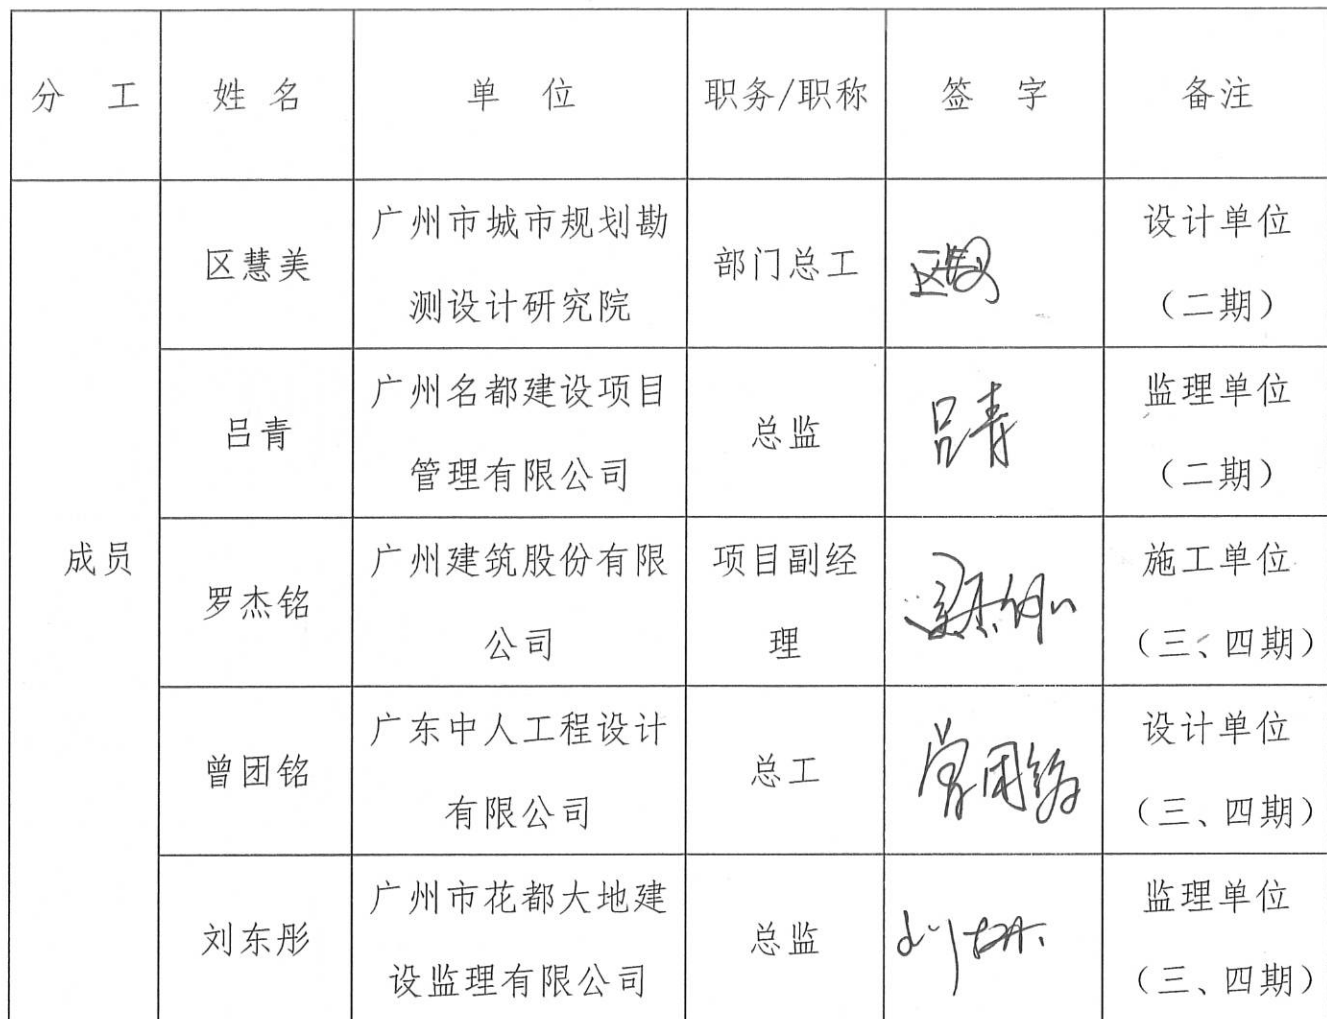 分 工 姓 名 单 位 职务/职称 签 字 备注
成员
区慧美
广州市城市规划勘
测设计研究院
部门总工
设计单位
（二期）
吕青
广州名都建设项目
管理有限公司
总监
吕青
监理单位
（二期）
罗杰铭
广州建筑股份有限
公司
项目副经
理
施工单位
（三、四期）
曾团铭
广东中人工程设计
有限公司
总工
设计单位
（三、四期）
刘东彤
广州市花都大地建
设监理有限公司
总监
监理单位
（三、四期）